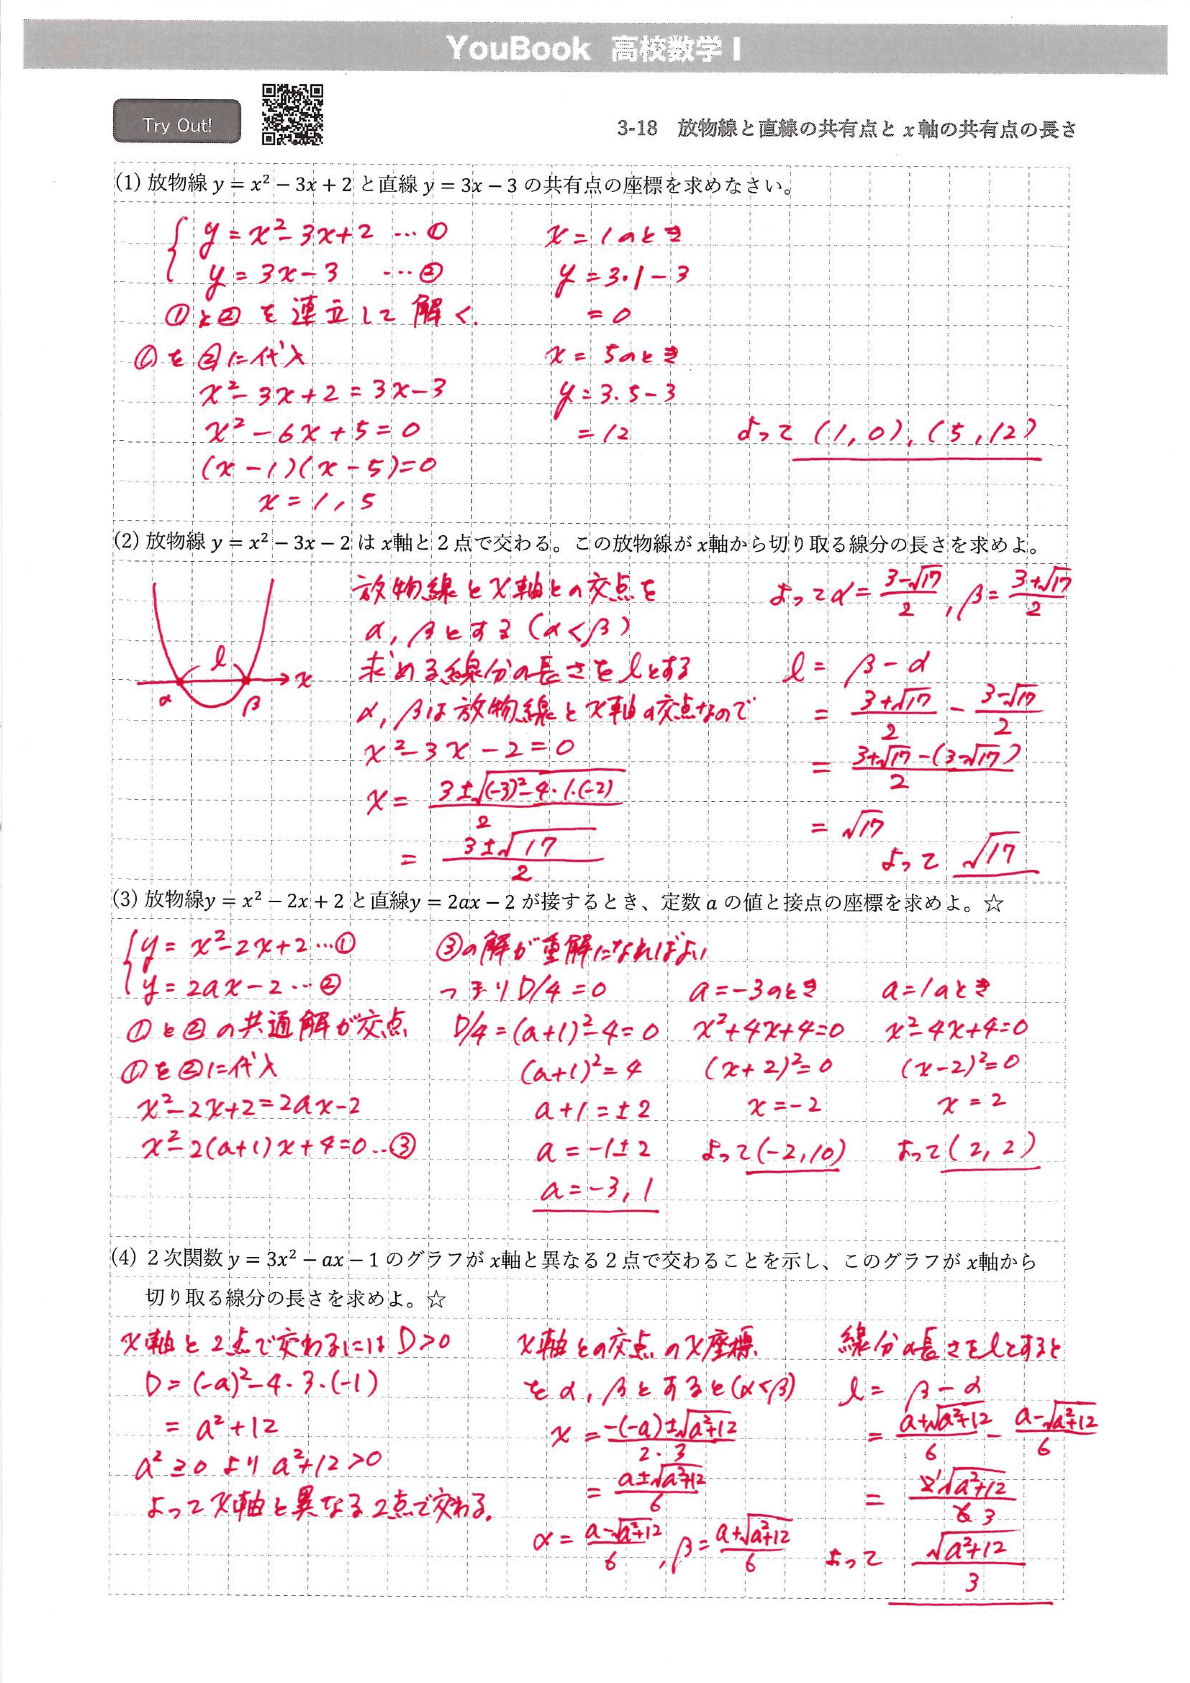 YouBook 高校数学 I
Try Out!
3-18 放物線と直線の共有点と x 軸の共有点の長さ
(1) 放物線 y = x² − 3x + 2 と直線 y = 3x − 3 の共有点の座標を求めなさい。
y = x² − 3x + 2 … ①
y = 3x − 3 … ②
①と②を連立して解く.
①を②に代入
x² − 3x + 2 = 3x − 3
x² − 6x + 5 = 0
(x − 1)(x − 5) = 0
x = 1, 5
x = 1のとき
y = 3・1 − 3
= 0
x = 5のとき
y = 3・5 − 3
= 12
よって (1, 0), (5, 12)
(2) 放物線 y = x² − 3x − 2 は x軸と2点で交わる。この放物線が x軸から切り取る線分の長さを求めよ。
l
x
α β
放物線とx軸との交点を
α, βとする (α < β)
求める線分の長さをlとする
α, βは放物線とx軸の交点なので
x² − 3x − 2 = 0
x = (3 ± √((−3)² − 4・1・(−2))) / 2
= (3 ± √17) / 2
よって α = (3 − √17) / 2 , β = (3 + √17) / 2
l = β − α
= (3 + √17) / 2 − (3 − √17) / 2
= (3 + √17 − (3 − √17)) / 2
= √17
よって √17
(3) 放物線y = x² − 2x + 2 と直線y = 2ax − 2 が接するとき、定数 a の値と接点の座標を求めよ。☆
y = x² − 2x + 2 … ①
y = 2ax − 2 … ②
①と②の共通解が交点
①を②に代入
x² − 2x + 2 = 2ax − 2
x² − 2(a+1)x + 4 = 0 … ③
③の解が重解になればよい
つまり D/4 = 0
D/4 = (a+1)² − 4 = 0
(a+1)² = 4
a + 1 = ±2
a = −1 ± 2
a = −3, 1
a = −3のとき
x² + 4x + 4 = 0
(x + 2)² = 0
x = −2
よって (−2, 10)
a = 1のとき
x² − 4x + 4 = 0
(x − 2)² = 0
x = 2
よって (2, 2)
(4) 2次関数 y = 3x² − ax − 1 のグラフが x軸と異なる2点で交わることを示し、このグラフが x軸から
切り取る線分の長さを求めよ。☆
x軸と2点で交わるには D > 0
D = (−a)² − 4・3・(−1)
= a² + 12
a² ≥ 0 より a² + 12 > 0
よって x軸と異なる2点で交わる.
x軸との交点のx座標
をα, βとすると (α < β)
x = (−(−a) ± √(a² + 12)) / 2・3
= (a ± √(a² + 12)) / 6
α = (a − √(a² + 12)) / 6 , β = (a + √(a² + 12)) / 6
線分の長さをlとすると
l = β − α
= (a + √(a² + 12)) / 6 − (a − √(a² + 12)) / 6
= 2 1 √(a² + 12) / 6 3
よって √(a² + 12) / 3